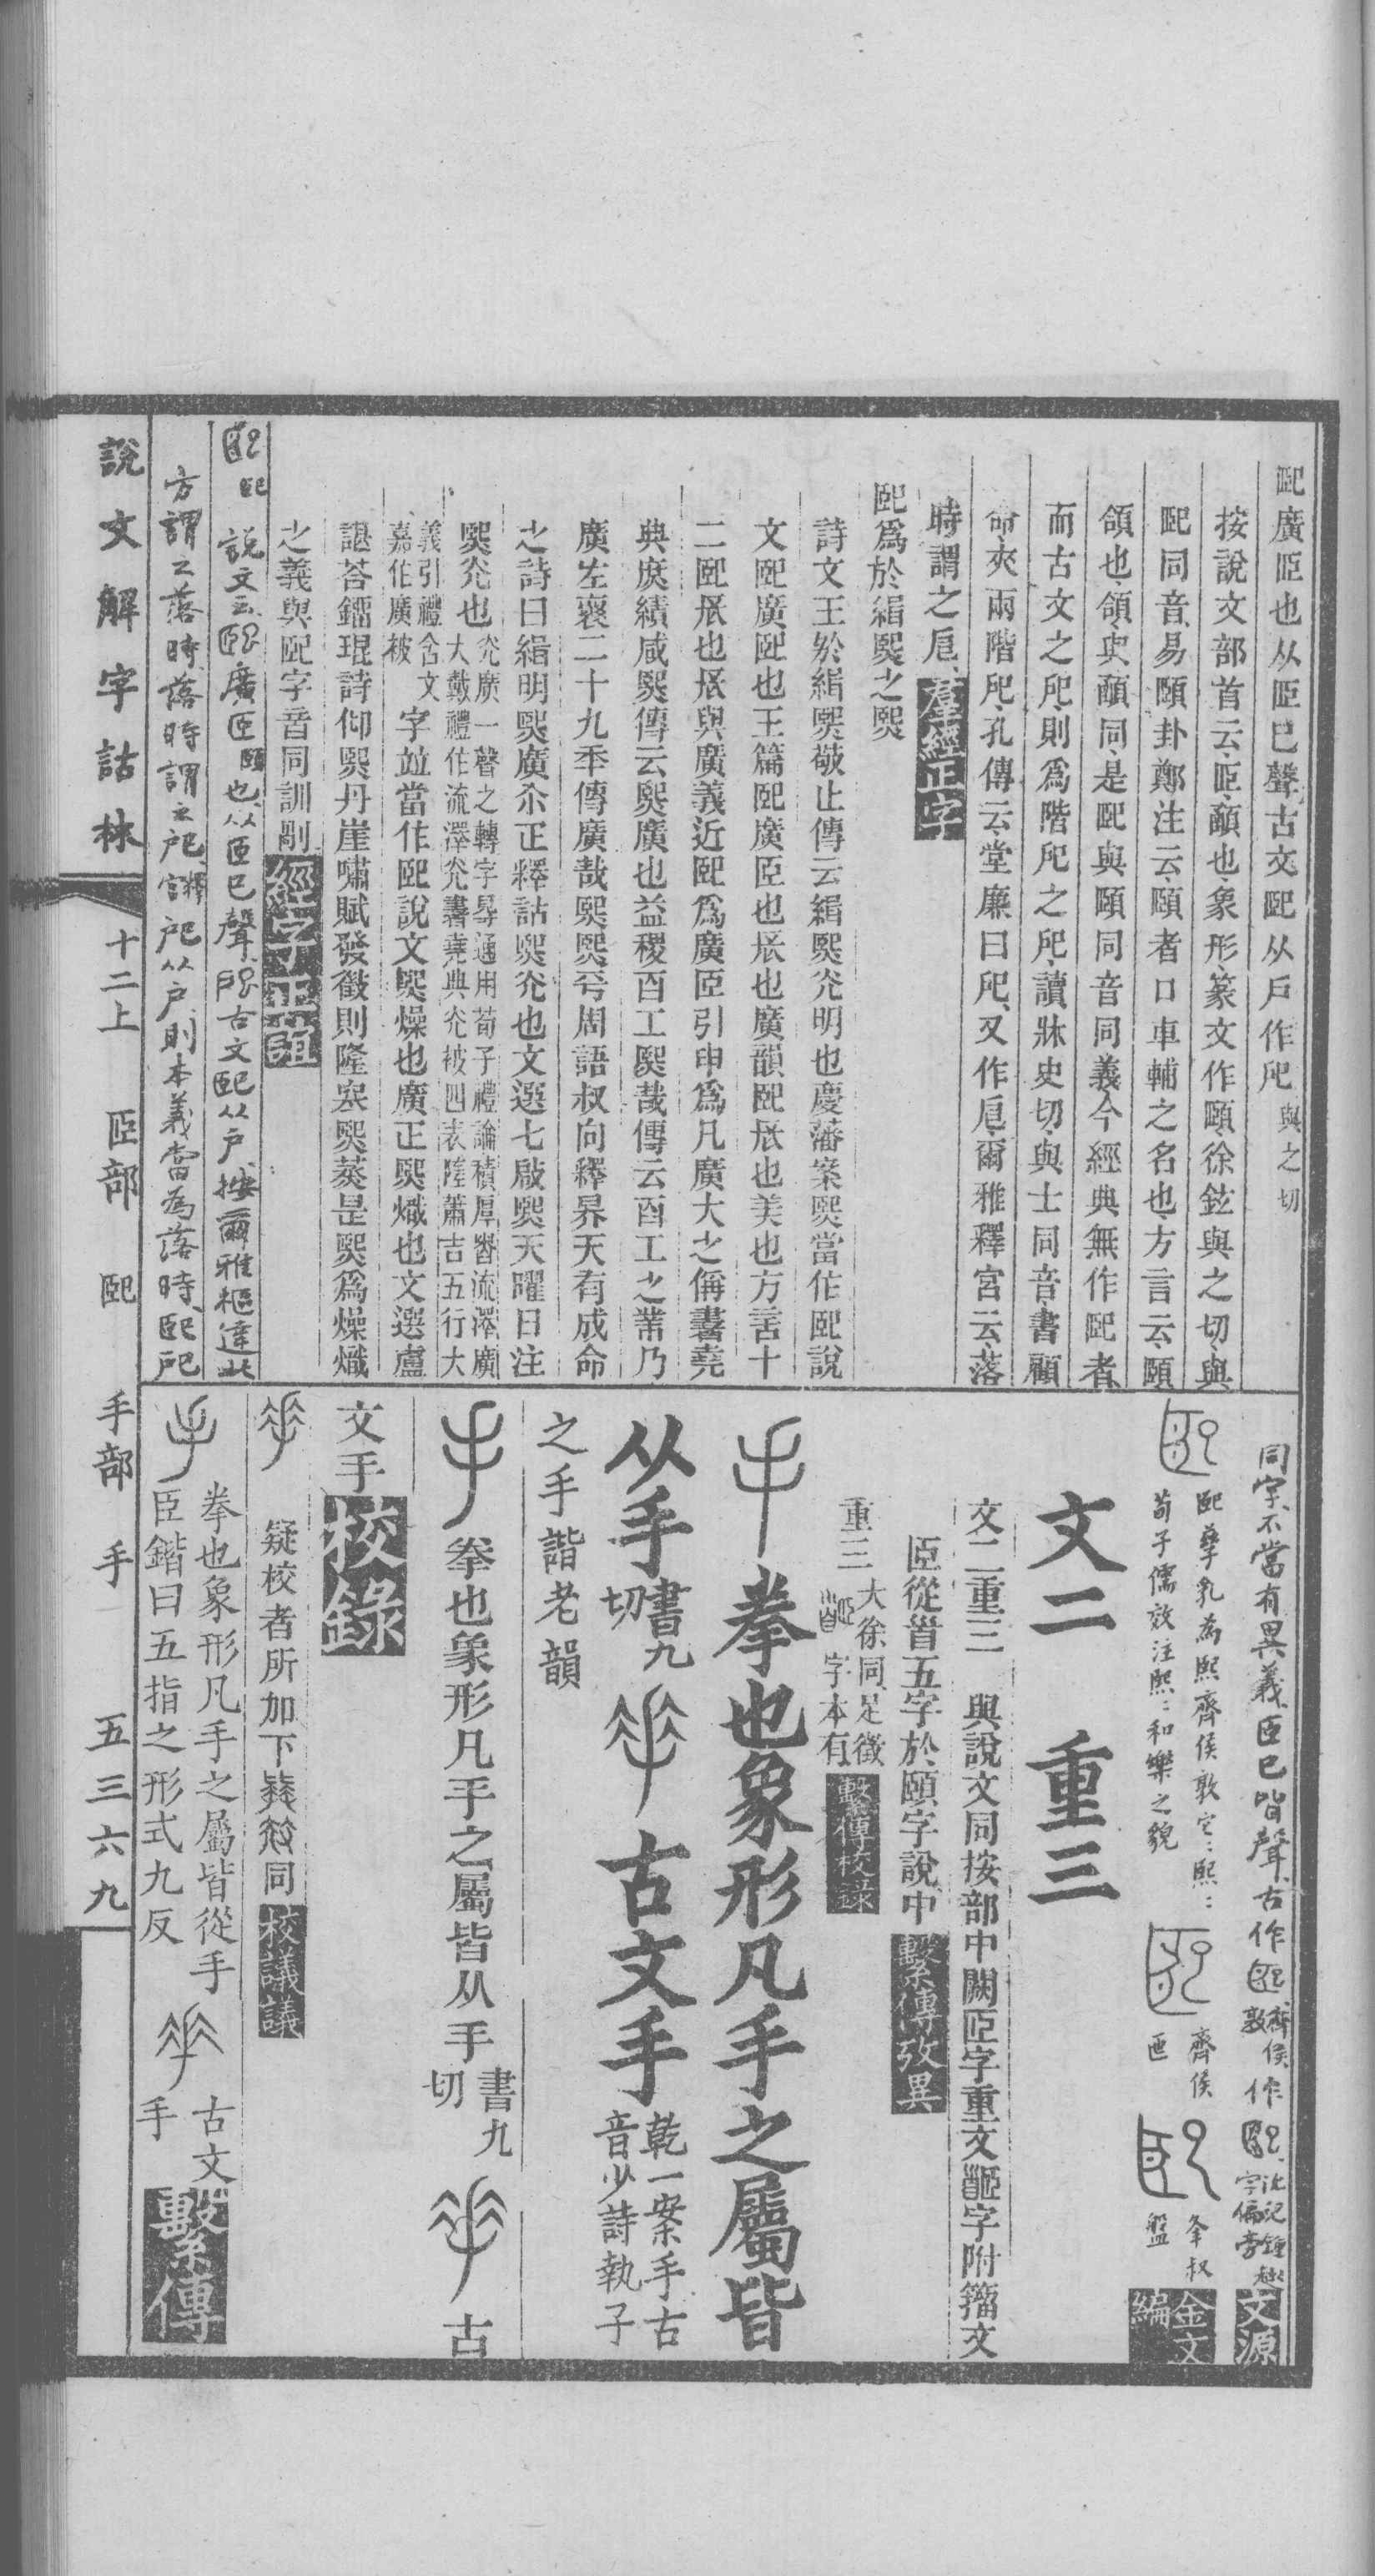 巸廣𦣞也从𦣞巳聲古文巸从戶作𢨪與之切
按說文部首云𦣞顄也象形篆文作頤徐鉉與之切與
巸同音易頤卦鄭注云頤者口車輔之名也方言云頤
頷也頷與顄同是巸與頤同音同義今經典無作巸者
而古文之𢨪則爲階𢨪之𢨪讀牀史切與士同音書顧
命夾兩階𢨪孔傳云堂廉曰𢨪又作扂爾雅釋宮云落
時謂之扂羣經正字
巸爲於緝熙之熙
詩文王於緝熙敬止傳云緝熙光明也慶藩案熙當作巸說
文巸廣巸也玉篇巸廣𦣞也長也廣韻巸長也美也方言十
二巸長也長與廣義近巸爲廣𦣞引申爲凡廣大之偁書堯
典庶績咸熙傳云熙廣也益稷百工熙哉傳云百工之業乃
廣左襄二十九年傳廣哉熙熙乎周語叔向釋昊天有成命
之詩曰緝明熙廣尒正釋詁熙光也文選七啟熙天曜日注
熙光也光廣一聲之轉字㝵通用荀子禮論積厚者流澤廣
大戴禮作流澤光書堯典光被四表隆蕭吉五行大
義引禮含文
嘉作廣被字竝當作巸說文熙燥也廣正熙熾也文選盧
諶荅劉琨詩仰熙丹崖嘯賦發徵則隆冬熙蒸是熙爲燥熾
之義與巸字音同訓別經文正誼
巸 說文云巸廣𦣞頤也从𦣞巳聲古文巸从戶按爾雅樞達北
方謂之落時落時謂之𢨪釋宮𢨪从戶則本義當爲落時巸𢨪
說文解字詁林 十二上 𦣞部 巸 手部 手 五三六九
同字不當有異義𦣞巳皆聲古作齊侯敦作沇兒鐘字偏旁文源
巸孳乳爲熙齊侯敦它:熙:
荀子儒效注熙:和樂之貌 齊侯匜 夆叔盤 金文編
文二 重三
文二重三 與說文同按部中闕𦣞字重文字附籀文
𦣞從𩠐五字於頤字說中繫傳攷異
重三大徐同足徵字本有繫傳校錄
拳也象形凡手之屬皆
从手書九切 古文手乾一案手古音少詩執子
之手諧老韻
拳也象形凡手之屬皆从手書九切 古
文手校錄
疑校者所加下同校議議
拳也象形凡手之屬皆從手
臣鍇曰五指之形式九反 古文手繫傳